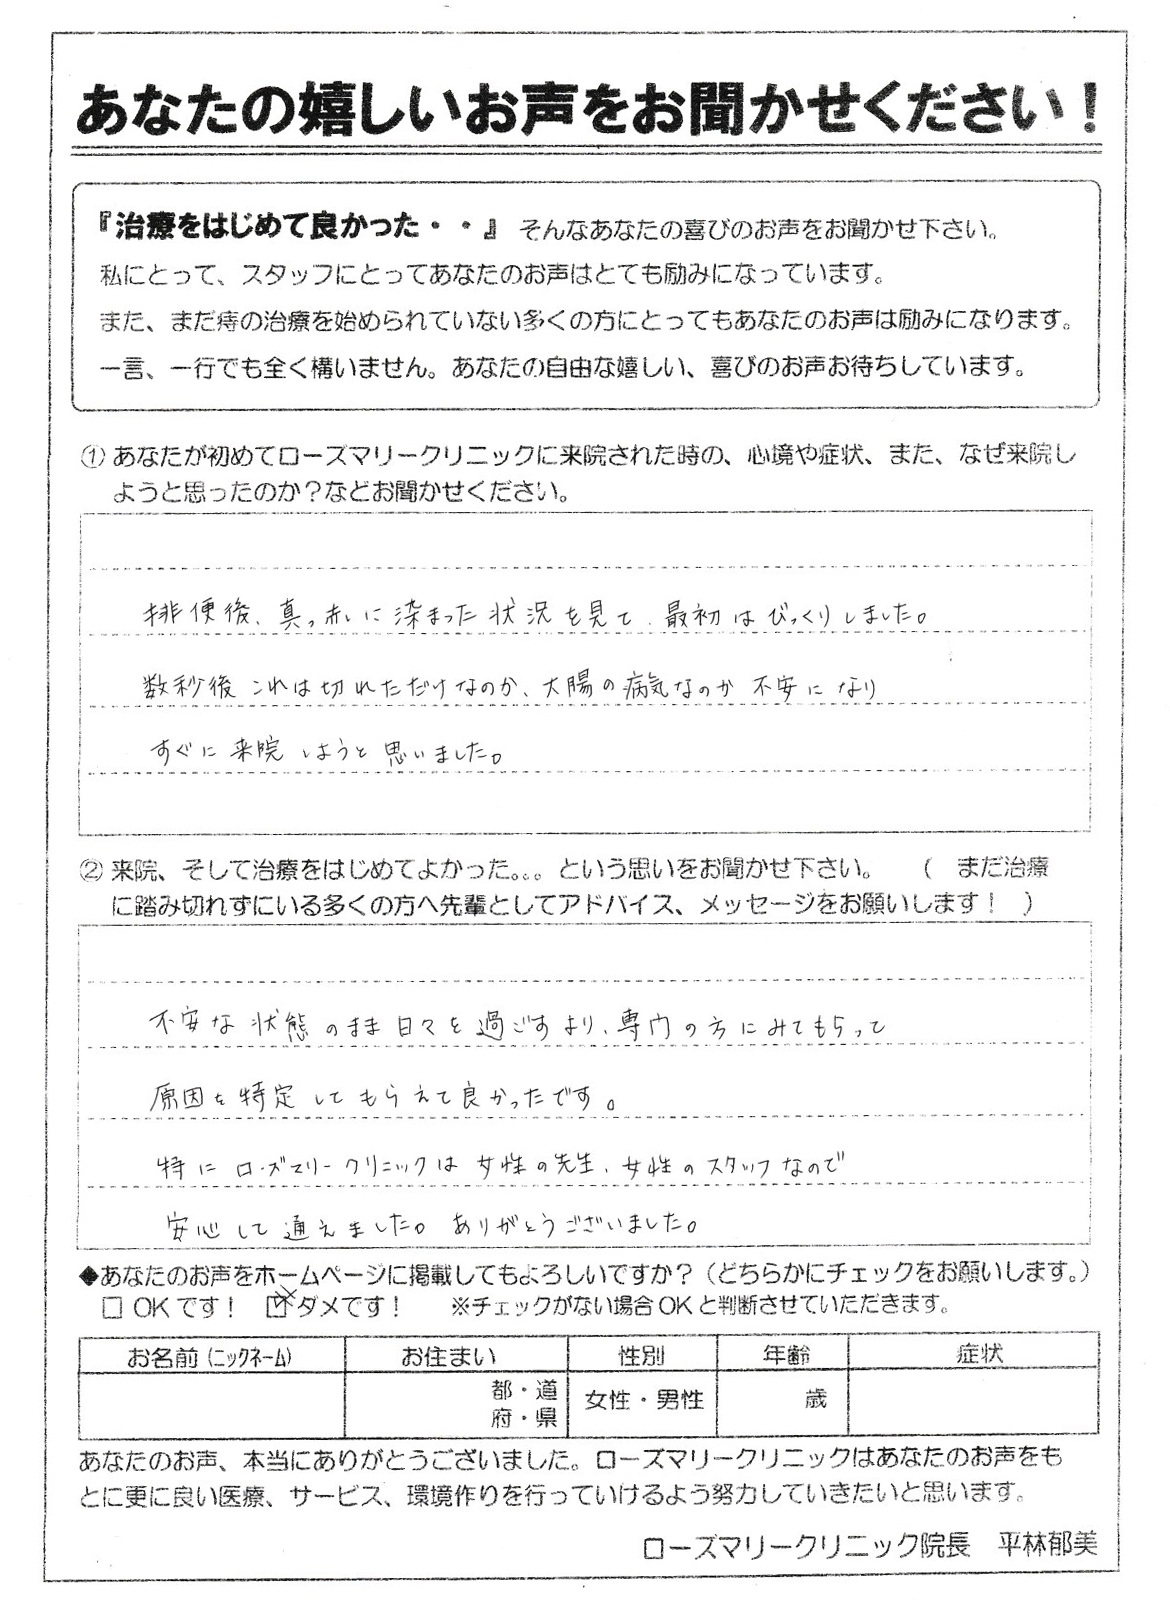 あなたの嬉しいお声をお聞かせください！
『治療をはじめて良かった・・』そんなあなたの喜びのお声をお聞かせ下さい。
私にとって、スタッフにとってあなたのお声はとても励みになっています。
また、まだ痔の治療を始められていない多くの方にとってもあなたのお声は励みになります。
一言、一行でも全く構いません。あなたの自由な嬉しい、喜びのお声お待ちしています。
① あなたが初めてローズマリークリニックに来院された時の、心境や症状、また、なぜ来院し
ようと思ったのか？などお聞かせください。
排便後、真っ赤に染まった状況を見て、最初はびっくりしました。
数秒後これは切れただけなのか、大腸の病気なのか不安になり
すぐに来院しようと思いました。
② 来院、そして治療をはじめてよかった。。。という思いをお聞かせ下さい。　（　まだ治療
に踏み切れずにいる多くの方へ先輩としてアドバイス、メッセージをお願いします！　）
不安な状態のまま日々を過ごすより、専門の方にみてもらって
原因を特定してもらえて良かったです。
特にローズマリークリニックは女性の先生、女性のスタッフなので
安心して通えました。ありがとうございました。
◆あなたのお声をホームページに掲載してもよろしいですか？（どちらかにチェックをお願いします。）
□ OKです！　☑ ダメです！　※チェックがない場合OKと判断させていただきます。
お名前（ニックネーム）　お住まい　性別　年齢　症状
都・道
府・県　女性・男性　歳
あなたのお声、本当にありがとうございました。ローズマリークリニックはあなたのお声をも
とに更に良い医療、サービス、環境作りを行っていけるよう努力していきたいと思います。
ローズマリークリニック院長　平林郁美